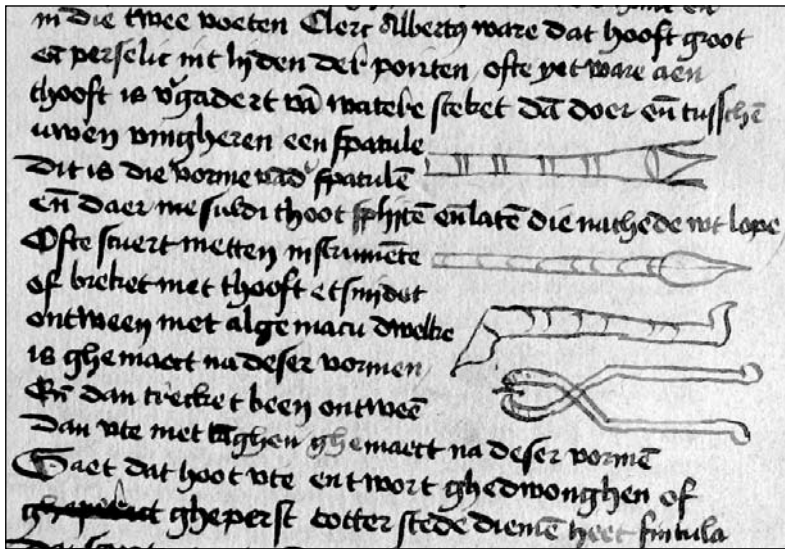 in die twee voeten Clerc Albertꝰ ware dat hooft groot
en̄ perselic int lijden der porten ofte yet ware aen
thooft is v̓gadert vā watere steket dā doer en̄ tusschē
uwen vingheren een spatule
Dit is die vorme vād̓ spatulē
en̄ daer me suldi thoot splijtē en̄ latē die nathede wt lopē
Ofte scuert metten instrumēte
of breket met thooft
ontween met algemacu dwelke
is ghemaect na deser vormen
En̄ dan trecket been ontweē
Dan vte met tāghen ghemaect na deser vormē
Gaet dat hoot vte en twort ghedwonghen of
gheperst totter stede diemē heet